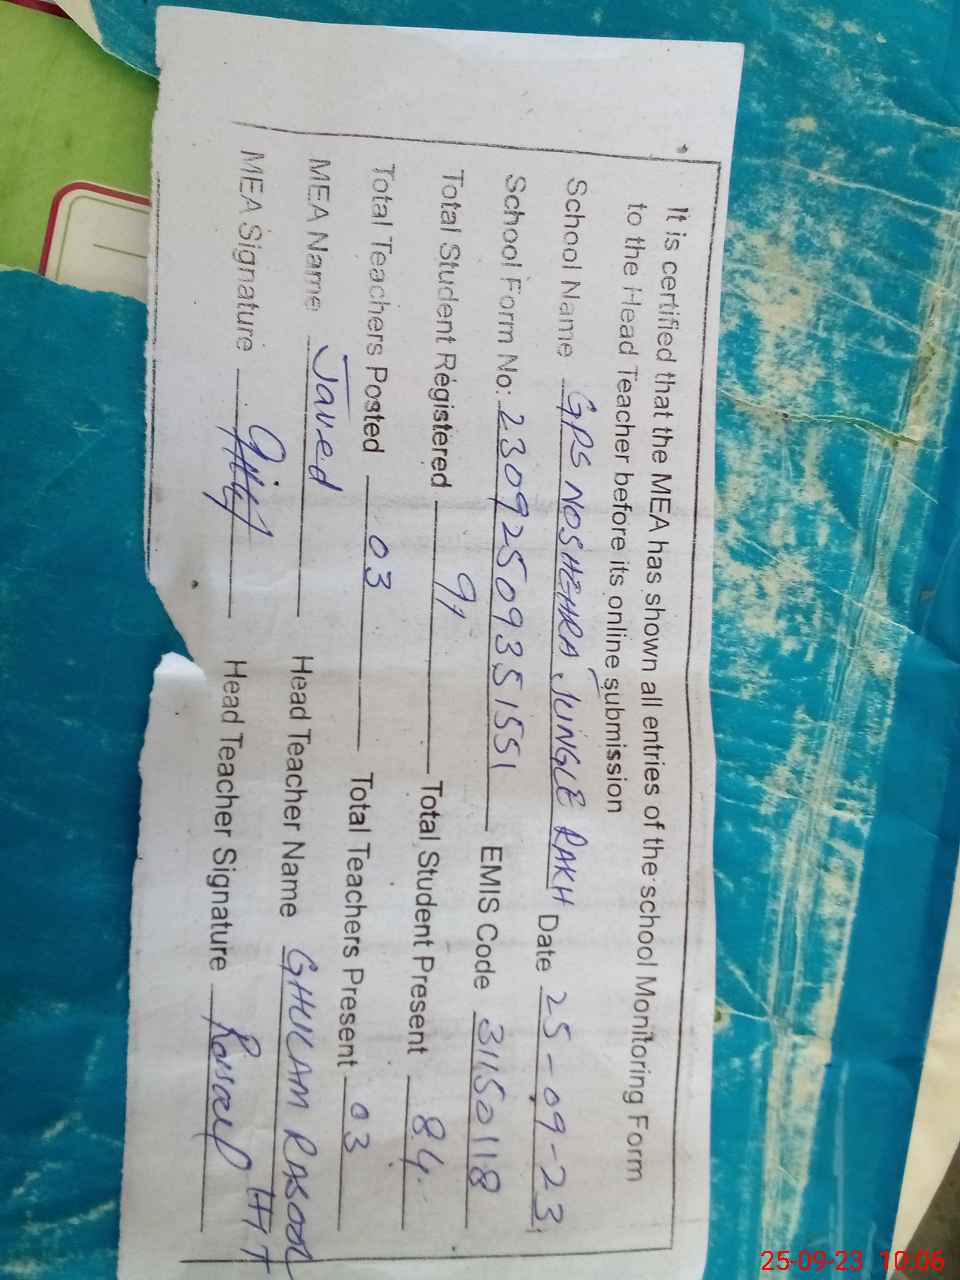 It is certified that the MEA has shown all entries of the school Monitoring Form
to the Head Teacher before its online submission
School Name GPS NOSHEHRA JUNGLE RAKH Date 25-09-23
School Form No: 23092509351551 EMIS Code 31150118
Total Student Registered 91 Total Student Present 84
Total Teachers Posted 03 Total Teachers Present 03
MEA Name Javed Head Teacher Name GHULAM RASOOL
MEA Signature Head Teacher Signature Rasool HT
25-09-23 10:06